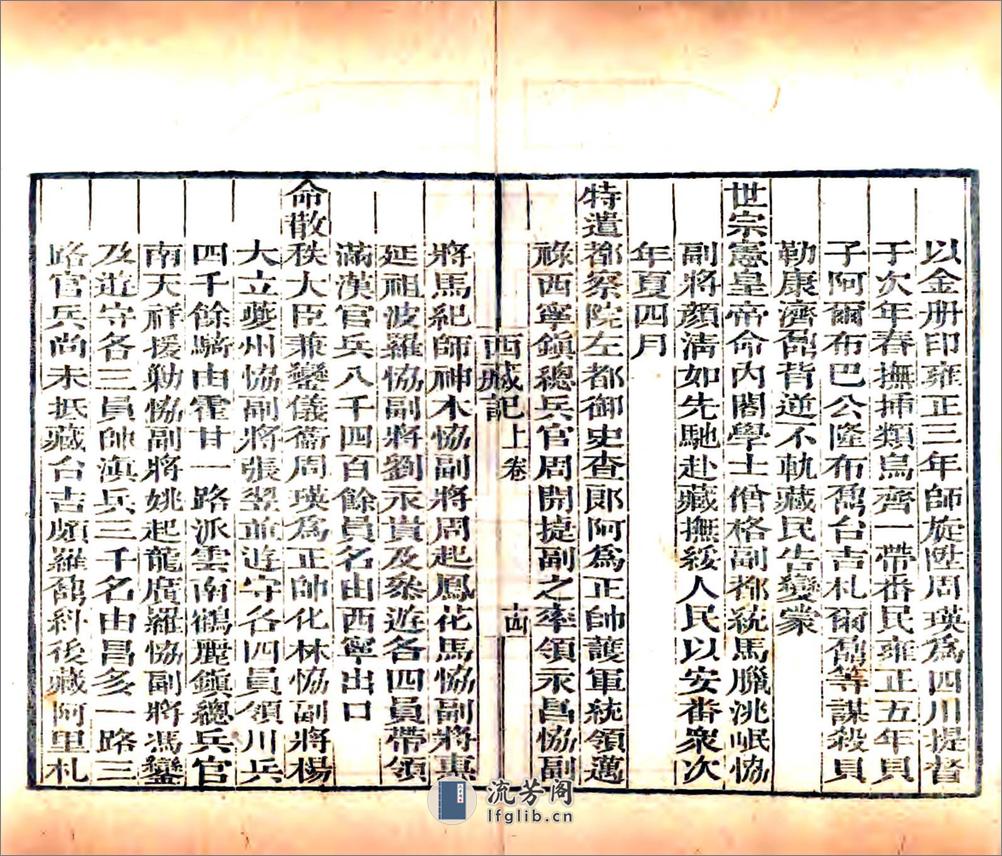 以金册印雍正三年師旋陞周瑛為四川提督
于次年春撫揷類烏齊一帶番民雍正五年貝
子阿爾布巴公隆布鼐台吉札爾鼐等謀殺貝
勒康濟鼐背逆不軌藏民告變蒙
世宗憲皇帝命內閣學士僧格副都統馬臘洮岷恊
副將顏清如先馳赴藏撫綏人民以安番衆次
年夏四月
特遣都察院左都御史查郎阿為正帥護軍統領邁
祿西寧鎮總兵官周開捷副之率領永昌恊副
西藏記上卷 十四
將馬紀師神木恊副將周起鳳花馬恊副將惠
延祖波羅恊副將劉永貴及叅遊各四員帶領
滿漢官兵八千四百餘員名由西寧出口
命散秩大臣兼鑾儀衞周瑛為正帥化林恊副將楊
大立夔州恊副將張翌並遊守各四員領川兵
四千餘騎由霍甘一路派雲南鶴麗鎮總兵官
南天祥援勦恊副將姚起龍廣羅恊副將馮鑾
及遊守各三員帥滇兵三千名由昌多一路三
路官兵尚未抵藏台吉頗羅鼐糾後藏阿里札
流芳阁
lfglib.cn